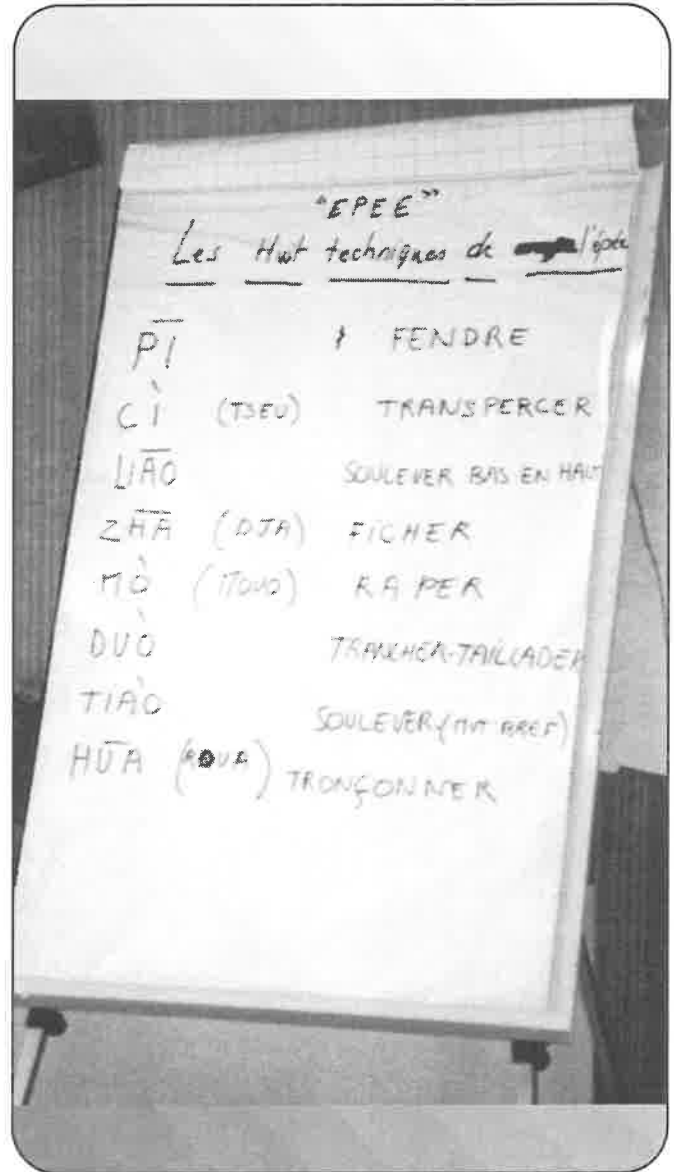 "EPEE"
Les Huit techniques de l'épée
PĪ FENDRE
CÌ (TSEU) TRANSPERCER
LIĀO SOULEVER BAS EN HAUT
ZHĀ (DJA) FICHER
MÒ RAPER
DUÒ TRANCHER-TAILLADER
TIĀO SOULEVER (MVT BREF)
HŪA TRONÇONNER